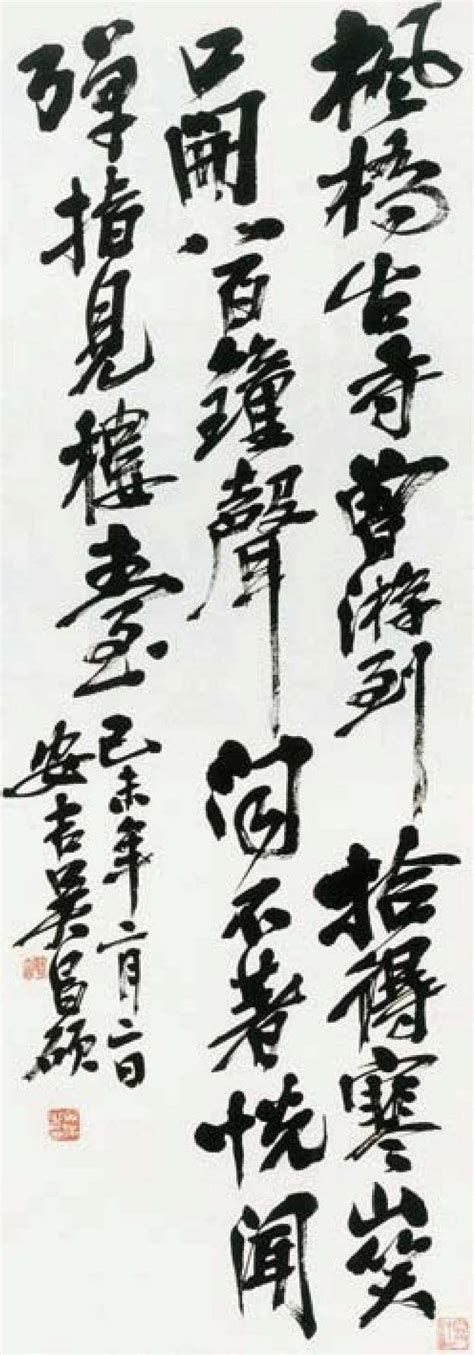 楓橋古寺曾游到拾得寒山笑
口開八百鐘聲問不著恍聞
彈指見樓臺
己未年二月二日
安吉吳昌碩